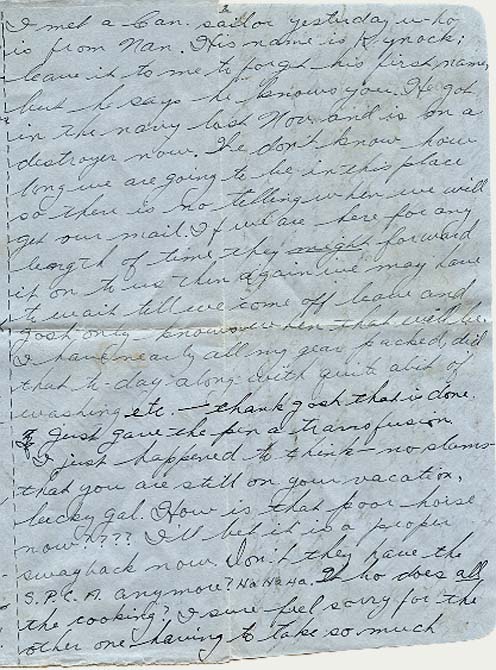 2
I met a Can. sailor yesterday who
is from Nan. His name is Kynock;
leave it to me to forget his first name,
but he says he knows you. He got
in the navy last Nov and is on a
destroyer now. We don't know how
long we are going to be in this place
so there is no telling when we will
get our mail. If we are here for any
length of time they might forward
it on to us then again we may have
to wait till we come off leave and
gosh only knows when that will be.
I have nearly all my gear packed, did
that to-day along with quite abit of
washing etc. — thank gosh that is done.
I just gave the pen a transfusion.
I just happened to think — no slams —
that you are still on your vacation,
lucky gal. How is that poor horse
now???? I'll bet it is a proper
swayback now. Don't they have the
S.P.C.A. anymore? Ha Ha Ha. Who does all
the cooking? I sure feel sorry for the
other one having to take so much